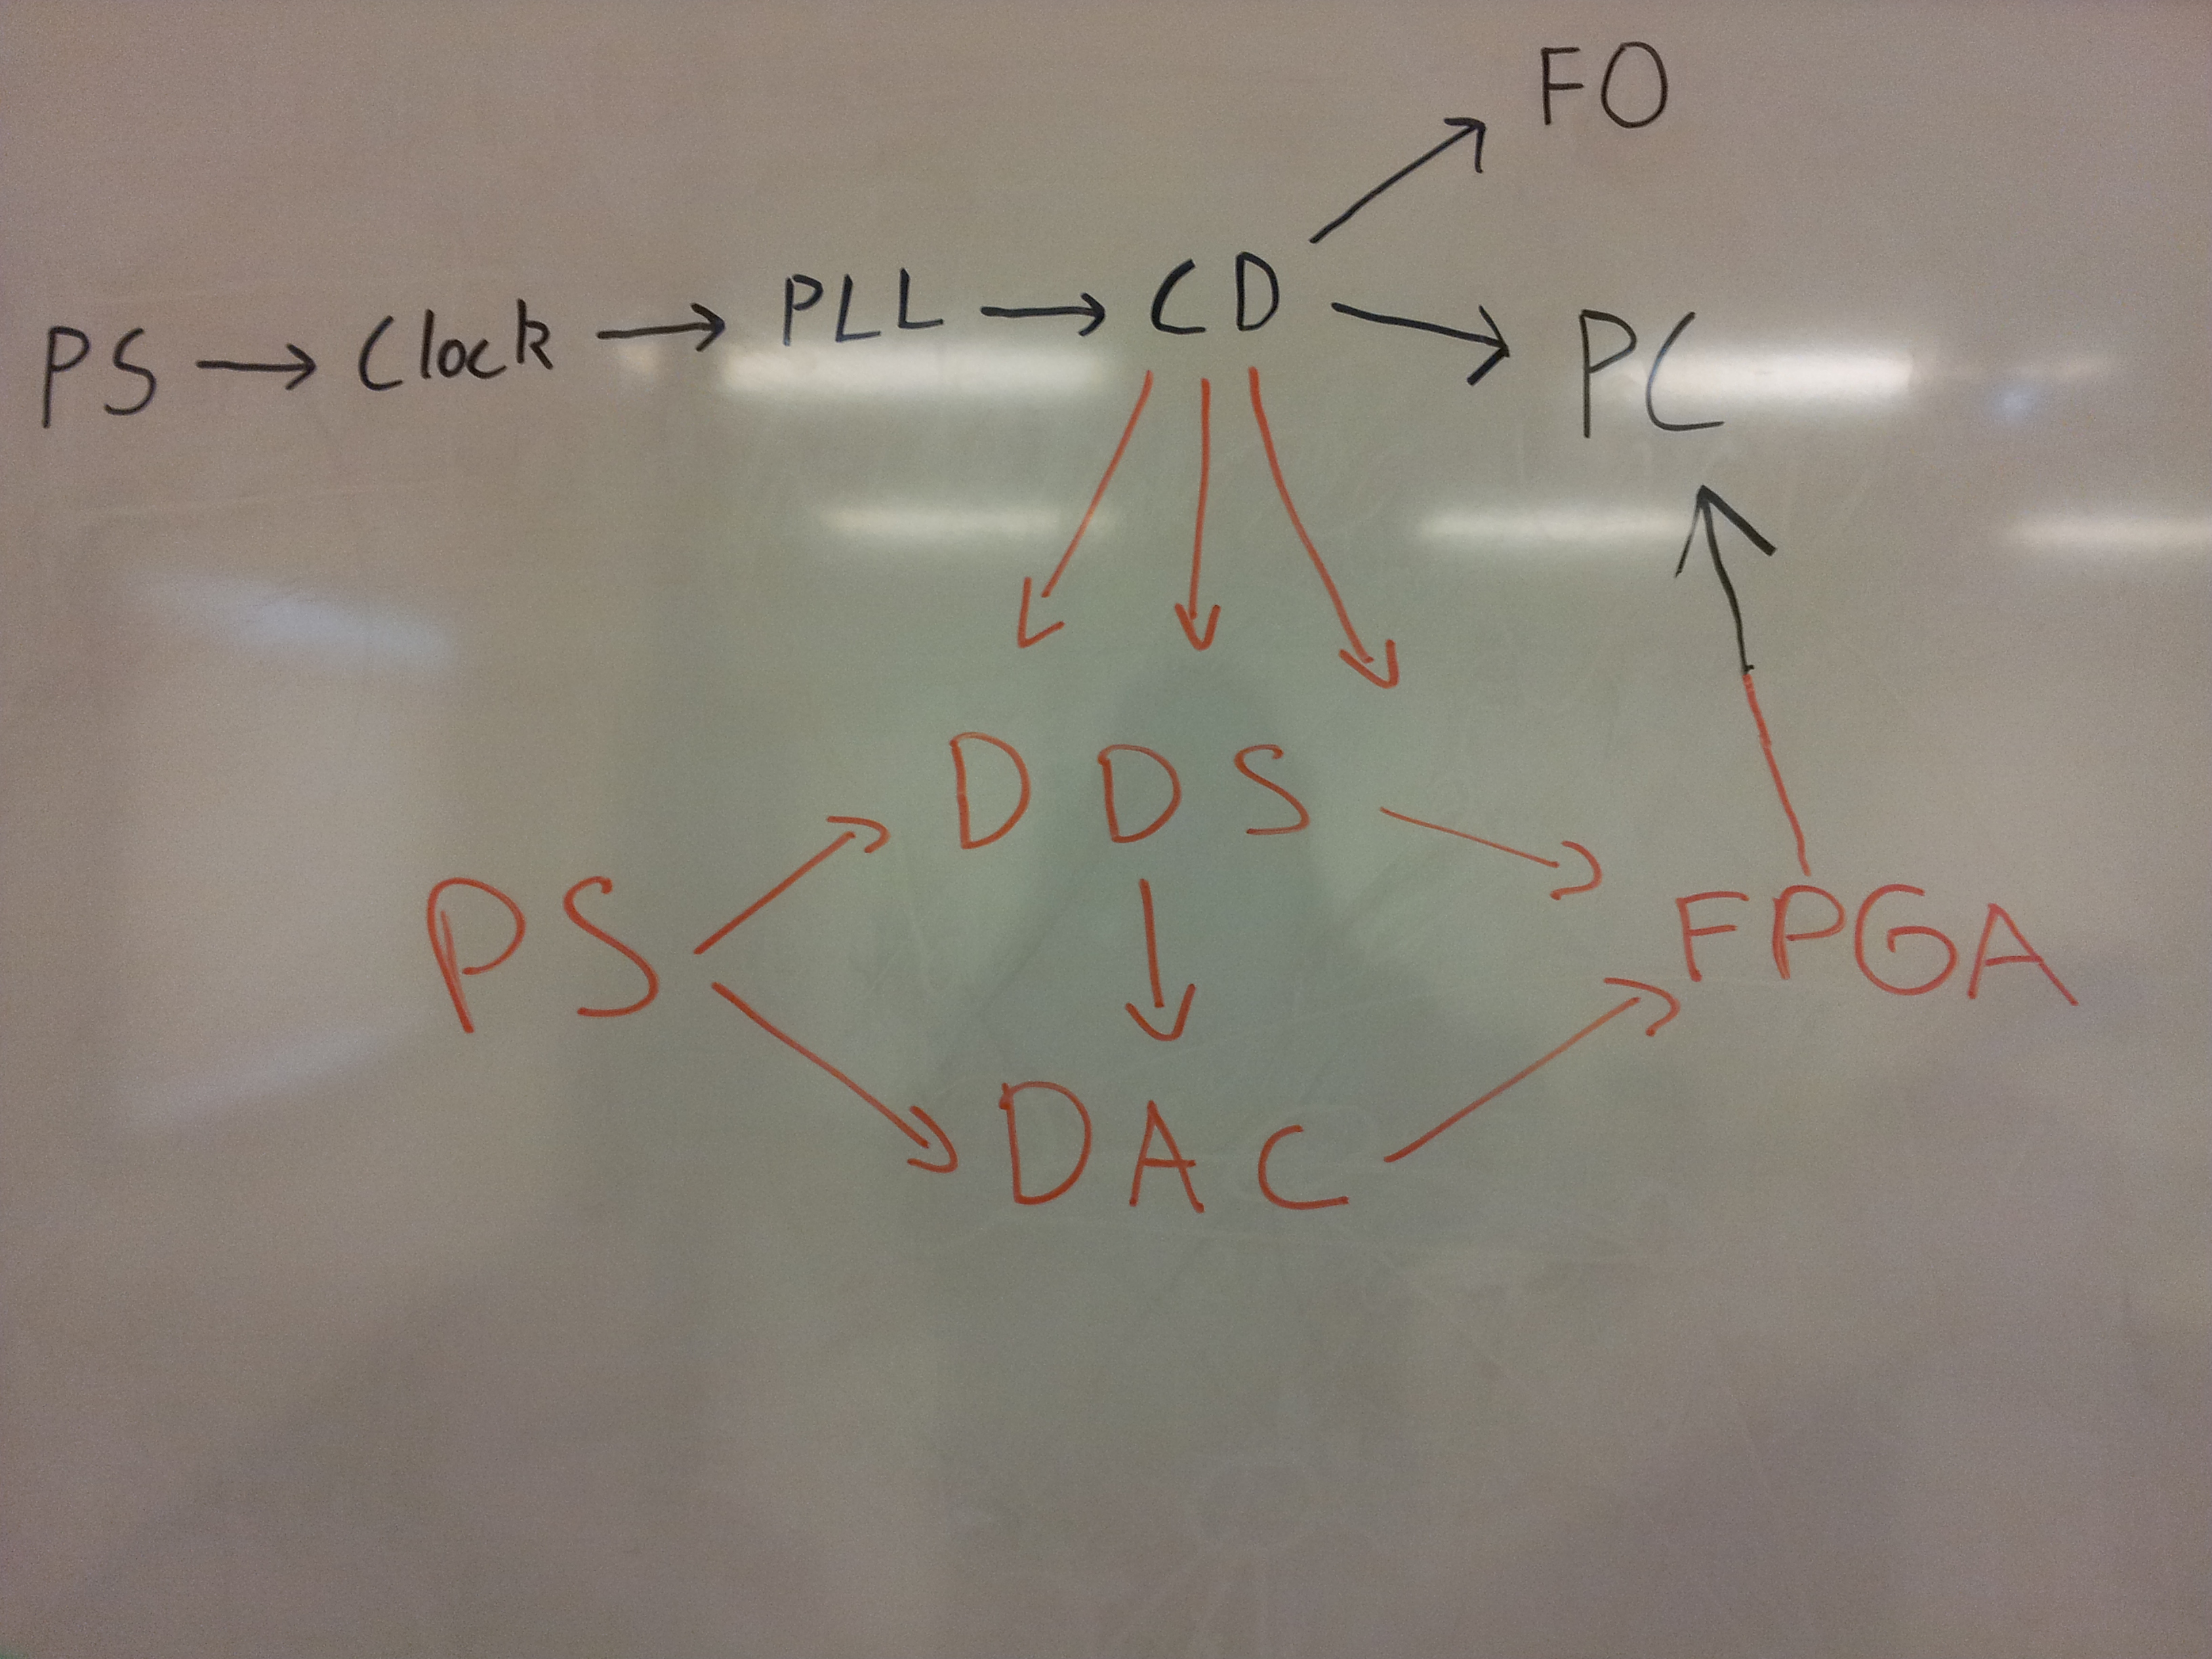 FO
PS → Clock → PLL → CD → PC
DDS
PS FPGA
DAC